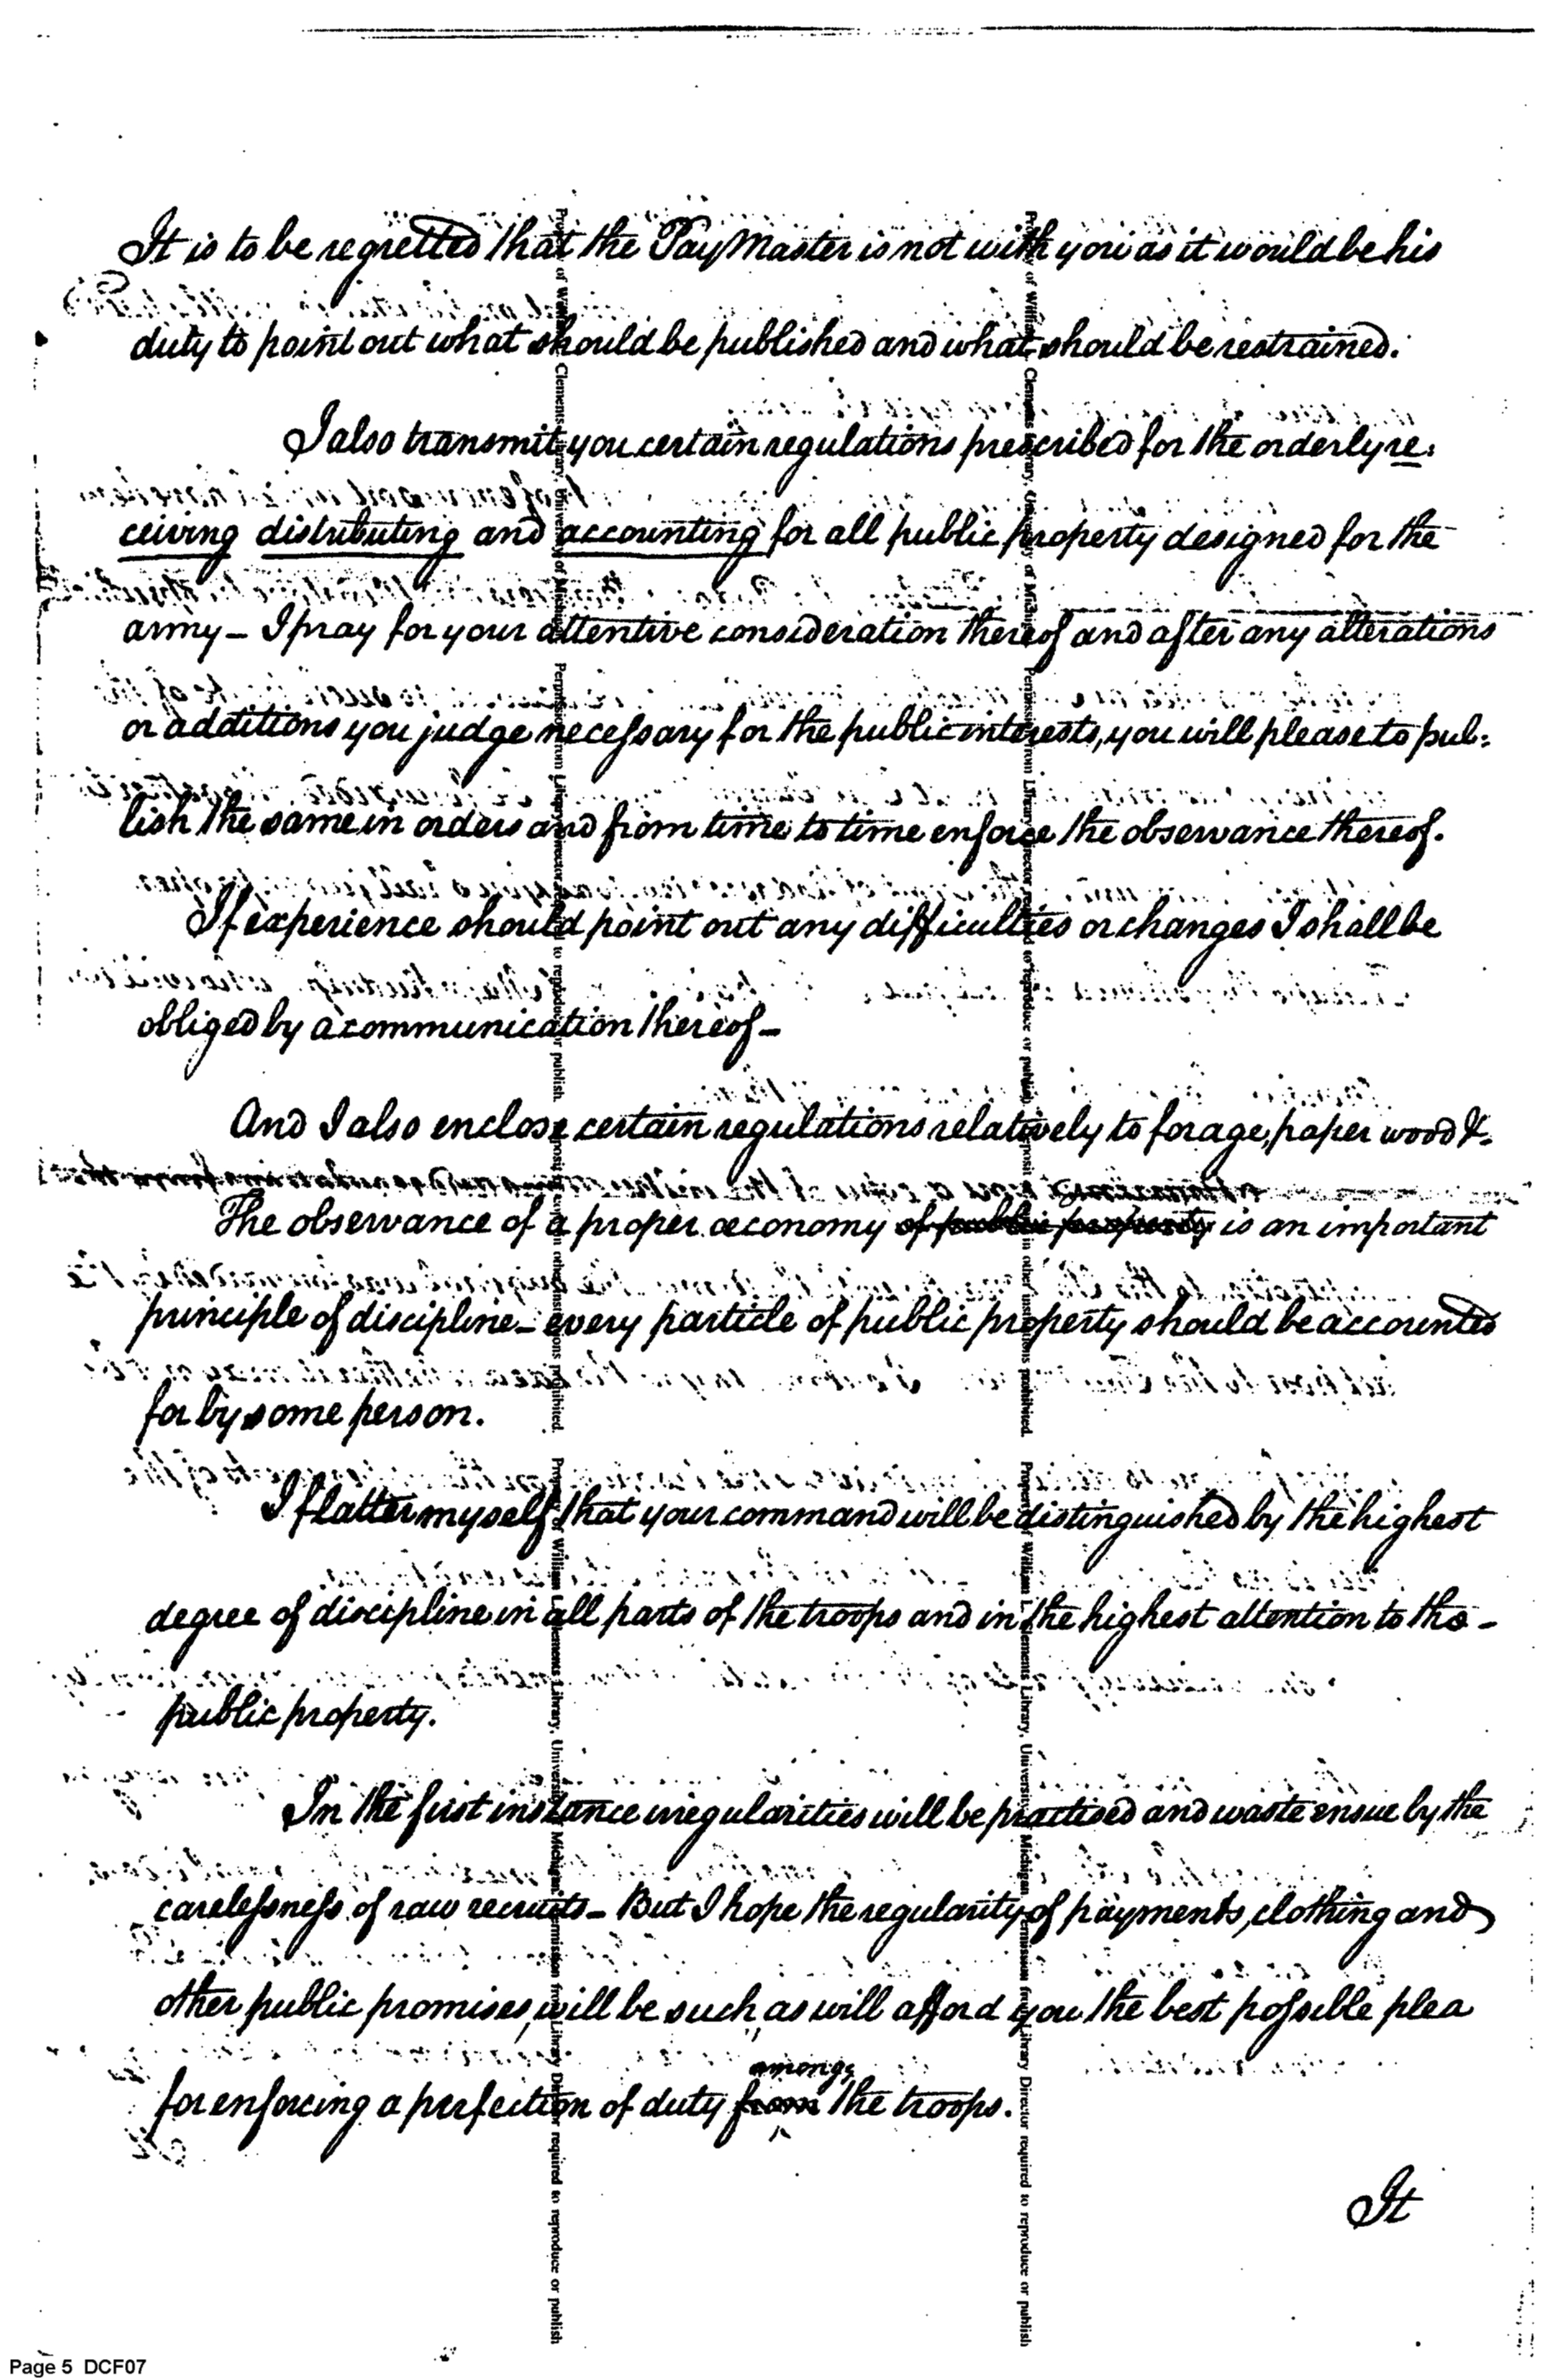 It is to be regretted that the Pay Master is not with you as it would be his
duty to point out what should be published and what should be restrained.
I also transmit you certain regulations prescribed for the orderly re:
ceiving distributing and accounting for all public property designed for the
army – I pray for your attentive consideration thereof and after any alterations
or additions you judge necessary for the public interests, you will please to pub:
lish the same in orders and from time to time enforce the observance thereof.
If experience should point out any difficulties or changes I shall be
obliged by a communication thereof –
And I also enclose certain regulations relatively to forage, paper wood &.
The observance of a proper œconomy of public property is an important
principle of discipline – every particle of public property should be accounted
for by some person.
I flatter myself that your command will be distinguished by the highest
degree of discipline in all parts of the troops and in the highest attention to the –
public property.
In the first instance irregularities will be practised and waste ensue by the
carelessness of raw recruits – But I hope the regularity of payments, clothing and
other public promises, will be such, as will afford you the best possible plea
among
for enforcing a perfection of duty from the troops.
It
Property of William L. Clements Library, University of Michigan. Permission from Library Director required to reproduce or publish. Deposit in other institutions prohibited. Property of William L. Clements Library, University of Michigan. Permission from Library Director required to reproduce or publish
Property of William L. Clements Library, University of Michigan. Permission from Library Director required to reproduce or publish. Deposit in other institutions prohibited. Property of William L. Clements Library, University of Michigan. Permission from Library Director required to reproduce or publish
Page 5 DCF07